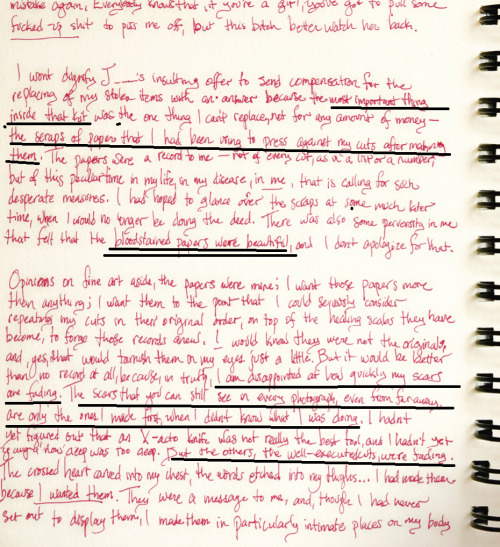 mistake again. Everybody knows that, if you're a girl, you've got to pull some
fucked-up shit to piss me off, but this bitch better watch her back.
I won't dignify J___'s insulting offer to send compensation for the
replacing of my stolen items with an answer because the most important thing
inside that kit was the one thing I can't replace, not for any amount of money —
the scraps of paper that I had been using to press against my cuts after making
them. The papers were a record to me — not of every cut, as in a list or a number,
but of this peculiar time in my life, in my disease, in me, that is calling for such
desperate measures. I had hoped to glance over the scraps at some much later
time, when I would no longer be doing the deed. There was also some perversity in me
that felt that the bloodstained papers were beautiful, and I don't apologize for that.
Opinions on fine art aside, the papers were mine; I want those papers more
than anything; I want them to the point that I could seriously consider
repeating my cuts in their original order, on top of the healing scabs they have
become, to forge those records anew. I would know they were not the originals,
and, yes, that would tarnish them in my eyes just a little. But it would be better
than no record at all, because, in truth, I am disappointed at how quickly my scars
are fading. The scars that you can still see in every photograph, even from far away,
are only the ones I made first, when I didn't know what I was doing. I hadn't
yet figured out that an X-acto knife was not really the best tool, and I hadn't yet
how deep was too deep. But the others, the well-executed cuts, were fading.
The crossed heart carved into my chest, the words etched into my thighs... I had made them
because I wanted them. They were a message to me, and, though I had never
set out to display them, I made them in particularly intimate places on my body